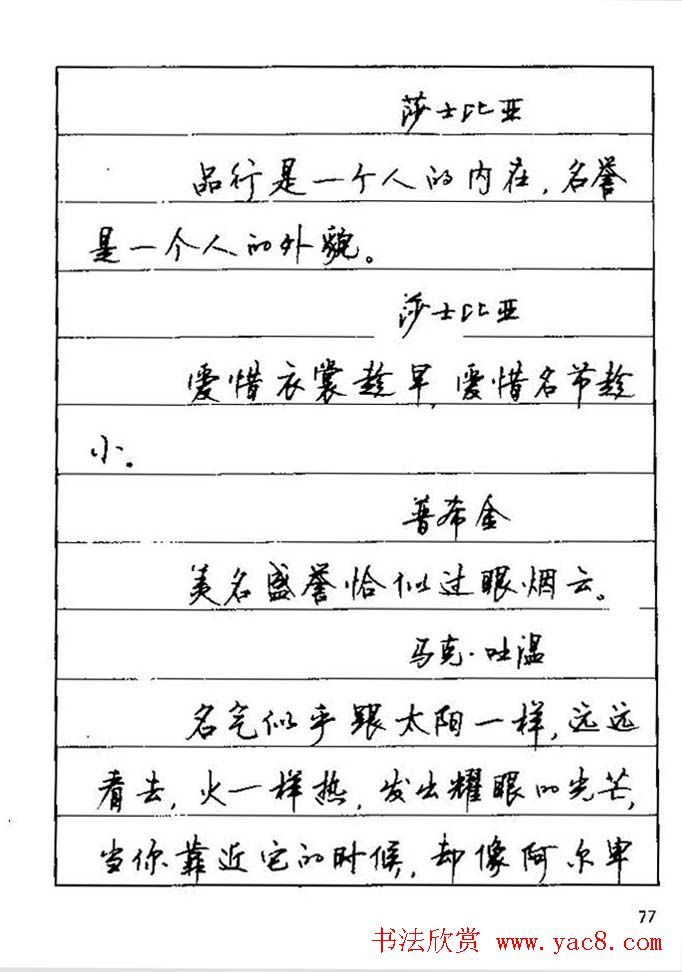 莎士比亚
品行是一个人的内在，名誉
是一个人的外貌。
莎士比亚
爱惜衣裳趁早，爱惜名节趁
小。
普希金
美名盛誉恰似过眼烟云。
马克·吐温
名气似乎跟太阳一样，远远
看去，火一样热，发出耀眼的光芒，
当你靠近它的时候，却像阿尔卑
77
书法欣赏 www.yac8.com